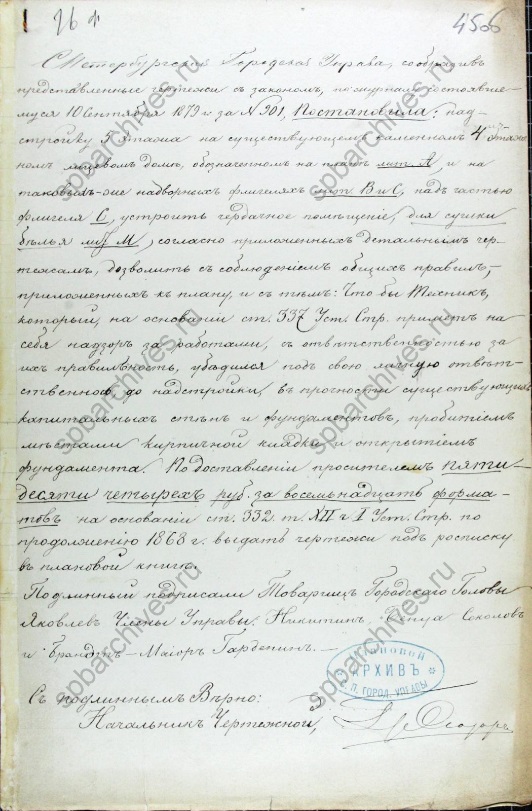 26 1
4506
С.Петербургская Городская Управа, сообразивъ
представленные чертежи съ закономъ, по журналу состоявше-
муся 10 Сентября 1879 г. за № 901, Постановила: над-
стройку 5 этажа на существующемъ каменномъ 4 этаж-
номъ лицевомъ домѣ, обозначенномъ на планѣ лит. А и на
таковыхъ-же надворныхъ флигеляхъ лит. В и С, надъ частью
флигеля С, устроить чердачное помѣщеніе, для сушки
бѣлья лит. М, согласно приложенныхъ детальнымъ чер-
тежамъ, дозволить съ соблюденіемъ общихъ правилъ,
приложенныхъ къ плану, и съ тѣмъ: Что бы Техникъ,
который, на основаніи ст. 337 Уст. Стр. приметъ на
себя надзоръ за работами, съ отвѣтственностью за
ихъ правильность, убѣдился подъ свою личную отвѣт-
ственность, до надстройки, въ прочности существующихъ
капитальныхъ стѣнъ и фундаментовъ, пробитіемъ
мѣстами кирпичной кладки и открытіемъ
фундамента. По доставленіи просителемъ пяти-
десяти четырехъ руб. за восемьнадцать форма-
товъ на основаніи ст. 332 т. XII ч I Уст. Стр. по
продолженію 1868 г. выдать чертежи подъ росписку
въ плановой книгѣ.
Подлинный подписали Товарищъ Городскаго Головы
Яковлевъ Члены Управы: Никитинъ, Соколовъ
и Брандтъ-Маіоръ
ПЛАНОВОЙ
АРХИВЪ
С. П. ГОРОД. УПРАВЫ
Съ подлиннымъ Вѣрно:
Начальникъ Чертежной,
spbarchives.ru